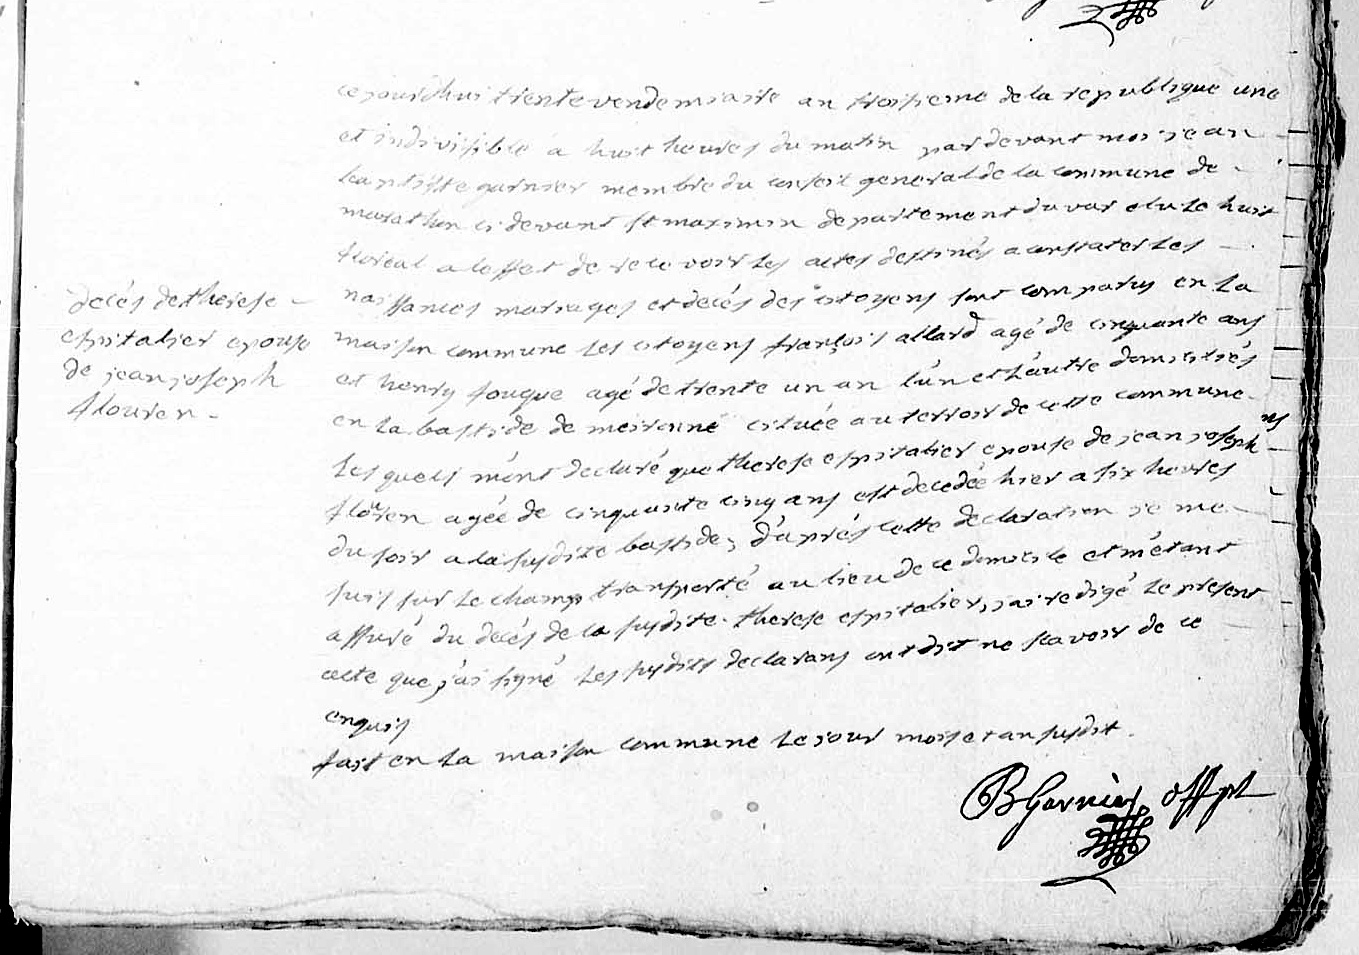 cejourdhui trente vendemiaire an troisieme de la republique une
et indivisible a huit heures du matin pardevant moi jean
baptiste garnier membre du conseil general de la commune de
marathon ci devant st maximin departement du var elu le huit
floreal a leffet de recevoir les actes destinés a constater les
naissances mariages et decés des citoyens sont comparus en la
maison commune les citoyens françois allard agé de cinquante ans
et henry fouque agé de trente un an l'un et l'autre domiciliés
en la bastide de meironne cituée au terroir de cette commune
ns
les quels m'ont declaré que therese espitalier epouse de jean joseph
flouren agée de cinquante cinq ans est decedée hier a six heures
du soir a la susdite bastide, d'après cette declaration je me
suis sur le champ transporté au lieu de ce domicile et m'étant
assuré du decés de la susdite therese espitalier, j'ai redigé le present
acte que j'ai signé les susdits declarans ont dit ne scavoir de ce
enquis
fait en la maison commune le jour mois et an susdit.
decés de therese
espitalier epouse
de jean joseph
flouren
B Garnier off pt